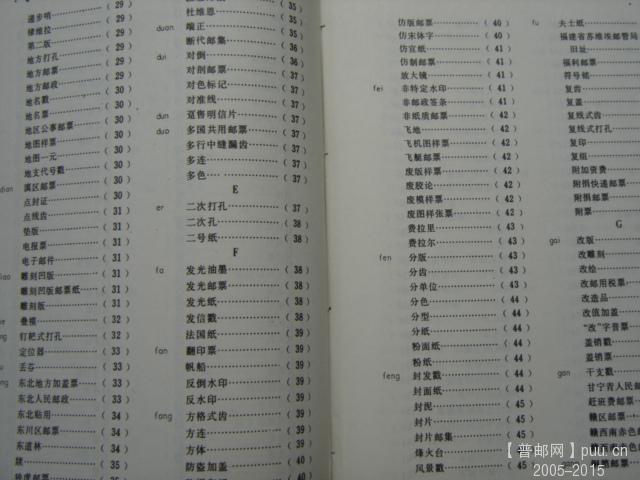 递步哨 (29)
棣维拉 (29)
第二版 (29)
地方打孔 (29)
地方邮票 (29)
地方邮政 (29)
地名戳 (30)
地名票 (30)
地区公事邮票 (30)
地图样票 (30)
地图一元 (30)
地支代号戳 (30)
dian 滇区邮票 (30)
点封证 (31)
点线齿 (31)
垫版 (31)
电报票 (31)
电子邮件 (31)
diao 雕刻凹版 (31)
雕刻凹版邮票纸 (31)
雕刻版 (31)
叠模 (32)
钉耙式打孔 (32)
定位器 (33)
丢夲 (33)
东北地方加盖票 (33)
东北人民邮政 (33)
东北贴用 (34)
东川区邮票 (34)
东道林 (34)
(35)
(35)
杜维恩 (35)
duan 端正 (35)
断代邮集 (36)
dui 对倒 (36)
对剖邮票 (37)
对色标记 (37)
对准线 (37)
dun 趸售明信片 (37)
duo 多国共用邮票 (37)
多行中缝漏齿 (37)
多连 (37)
多色 (37)
E
er 二次打孔 (37)
二次孔 (38)
二号纸 (38)
F
fa 发光油墨 (38)
发光邮票 (38)
发光纸 (38)
发信戳 (38)
法国纸 (39)
fan 翻印票 (39)
帆船 (39)
反倒水印 (39)
反水印 (39)
fang 方格式齿 (39)
方连 (39)
方体 (39)
防盗加盖 (40)
仿版邮票 (40)
仿宋体字 (40)
仿宣纸 (41)
仿制邮票 (41)
放大镜 (41)
fei 非特定水印 (41)
非邮政签条 (41)
非纸质邮票 (42)
飞地 (42)
飞机图样票 (42)
飞艇邮票 (42)
废版样票 (42)
废胶论 (42)
废模样票 (42)
废图样张票 (42)
费拉里 (43)
费拉尔 (43)
fen 分版 (43)
分齿 (43)
分单位 (43)
分色 (44)
分型 (44)
分纸 (44)
粉面纸 (44)
粉纸 (44)
feng 封发戳 (44)
封面纸 (44)
封泥 (45)
封片 (45)
封片邮集 (45)
烽火台
风景戳
fu 夫士纸
福建省苏维埃邮管局
旧址
福利邮票
符号铭
复齿
复盖
复线式齿
复线式打孔
复印
复组
附加资费
附捐快递邮票
附捐邮票
附票
G
gai 改版
改雕刻
改绘
改邮用税票
改造品
改值加盖
“改”字普票
盖销戳
盖销票
gan 干支戳
甘宁青人民邮
赶班费邮票
赣区邮票
赣西南赤色邮
【普邮网】puu.cn
2005-2015